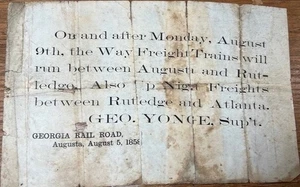 On and after Monday, August
9th, the Way Freight Trains will
run between Augusta and Rut-
ledge. Also Freights
between Rutledge and Atlanta.
GEO. YONGE, Sup't.
GEORGIA RAIL ROAD,
Augusta, August 5, 1858